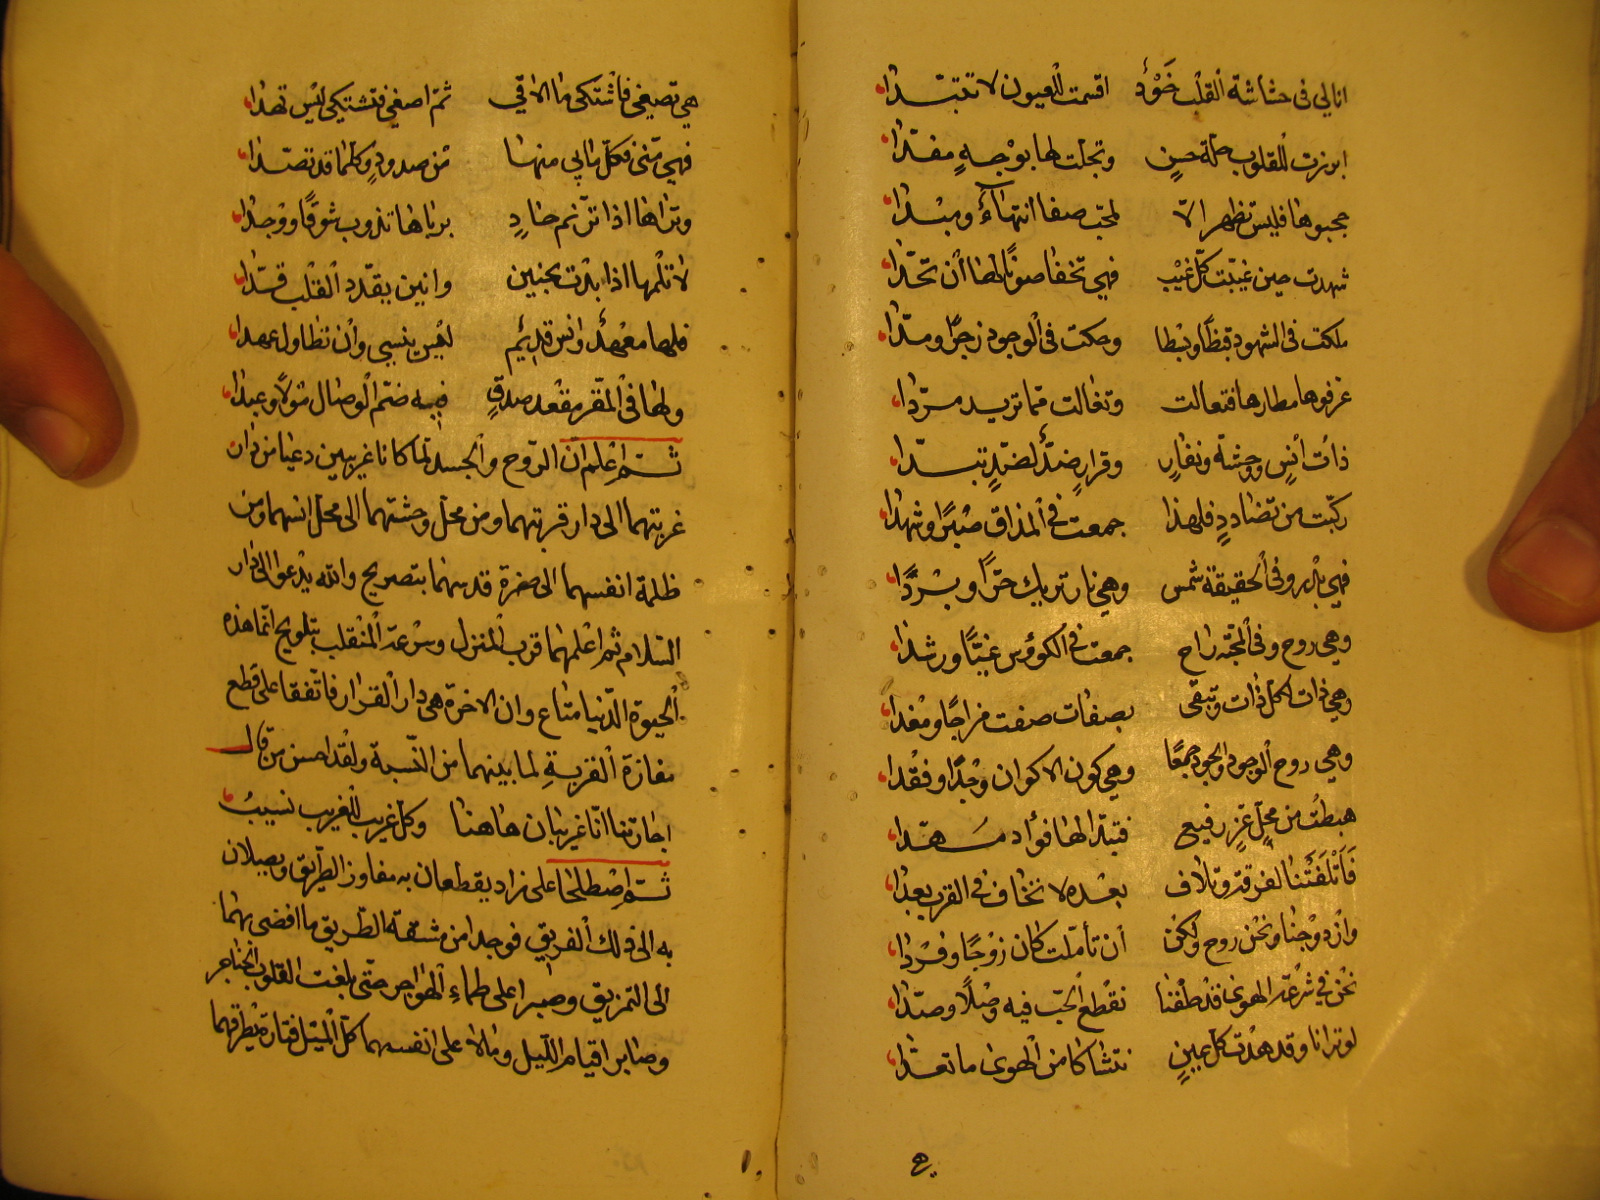 انا لي في حشاشة القلب خود اقسمت للعيون لا تتبدا
ابرزت للقلوب حلة حسن وتجلت لها بوجه مفدا
حجبوها فليس تظهر الا لمحب صفا انتهاء ومبدا
شهدت حين غيبت كل غيب فهي تخفا صونا لها ان تحدا
ملكت في الشهود قبظا وبسطا وحكت في الوجود زجرا ومدا
عرفوها مطارها فتعالت وتغالت مما تريد مردا
ذات انس ووحشة ونفار وقرار ضد لضد تبدا
ركبت من تضادد فلهذا جمعت في المذاق صبرا وشهدا
فهي بدر وفي الحقيقة شمس وهي نار تريك حرا وبردا
وهي روح وفي المحبة راح جمعت في الكؤس غيا ورشدا
وهي ذات لكل ذات وتبقى بصفات صفت مزاجا ومغدا
وهي روح الوجود والجود جمعا وهي كون الاكوان وجدا وفقدا
هبطت من محل عز رفيع فتبدا لها فؤاد مهدا
فأتلفتنا لفرقة وتلاف بعده لا تخاف في القرب بعدا
وازدوجنا ونحن روح ولكن ان تأملت كان زوجا وفردا
نحن في شرعة الهوى قد طفنا نقطع الحب فيه وصلا وصدا
لو ترانا وقد هدت كل عين نتشاكا من الهوى ما تعدا
هي تصغي فاشتكي ما الاقي ثم اصغي فتشتكي ليس تهدا
فهي مني فكل ما بي منها من صدود وكلما قد تصدا
وتراها اذا ترنم حاد برباها تذوب شوقا ووجدا
لا تلمها اذا بدت بحنين وانين يقدد القلب قدا
فلها معهد وانس قديم ليس ينسى وان تطاول عهدا
ولها في المقر مقعد صدق فيه ضم الوصال مولا وعبدا
ثم اعلم ان الروح والجسد لما كانا غريبين دعيا من دار
غربتهما الى دار قربتهما ومن محل وحشتهما الى محل انسهما ومن
ظلمة انفسهما الى حضرة قدسهما بتصريح والله يدعوا الى دار
السلام ثم اعلمهما قرب المنزل وسرعة المنقلب بتلويح انما هذه
الحيوة الدنيا متاع وان الاخرة هي دار القرار فاتفقا على قطع
مفازة الغربة لما بينهما من النسبة ولقد احسن من قال
اجارتنا انا غريبان هاهنا وكل غريب للغريب نسيب
ثم اصطلحا على زاد يقطعان به مفاوز الطريق ويصلان
به الى ذلك الفريق فوجدا من مشقة الطريق ما افضى بهما
الى التمزيق وصبرا على ظماء الهواجر حتى بلغت القلوب الحناجر
وصابرا قيام الليل ومالا على انفسهما كل الميل فتارة يطرقهما